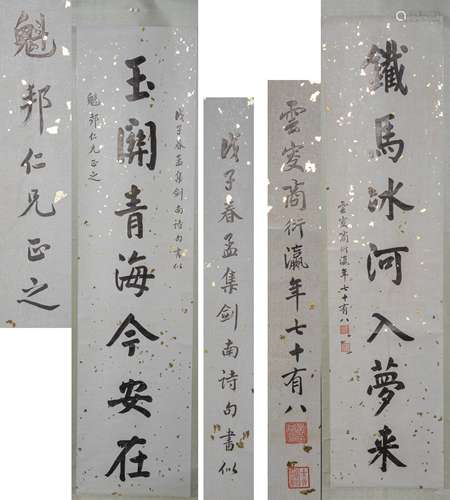 鐵馬冰河入夢来
雲叟商衍瀛年七十有八
雲叟商衍瀛年七十有八
戊子春孟集劍南詩句書似
戊子春孟集劍南詩句書似
玉關青海今安在
魁邦仁兄正之
魁邦仁兄正之